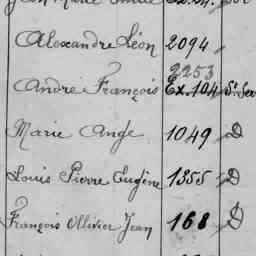 Alexandre Léon 2094 "
2253
André François Ex.104 St Ser
Marie Ange 1049 " D
Louis Pierre Eugène 1355 " D
François Ollivier Jean 168 " D